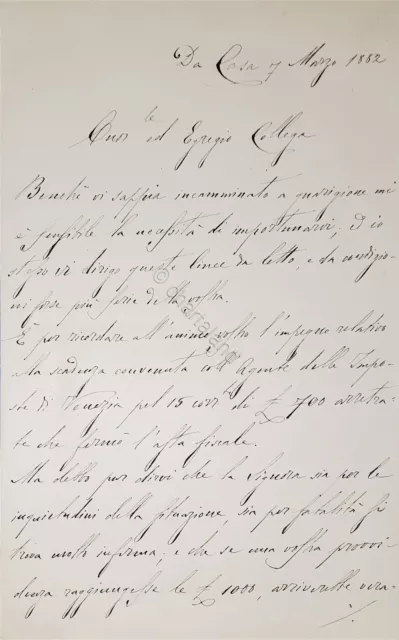 Da Casa 7 Marzo 1882
Onor.le ed Egregio Collega
Benchè vi sappia incamminato a guarigione mi
è sensibile la necessità di importunarvi, ed io
stesso vi dirigo queste linee da letto, e da condizio-
ni forse più serie della vostra.
È per ricordare all'animo vostro l'impegno relativo
alla scadenza convenuta coll'Agente delle Impo-
ste di Venezia pel 15 corr. di £ 700 arretra-
te che fermò l'asta fiscale.
Ma debbo pur dirvi che la Signora sia per le
inquietudini della situazione, sia per fatalità si
trova molto inferma; e che se una vostra provvi-
denza raggiungesse le £ 1000, arriverebbe vera-
./.